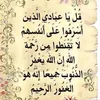 قُلْ يَا عِبَادِيَ الَّذِينَ
أَسْرَفُوا عَلَى أَنْفُسِهِمْ
لَا تَقْنَطُوا مِنْ رَحْمَةِ
اللَّهِ إِنَّ اللَّهَ يَغْفِرُ
الذُّنُوبَ جَمِيعًا إِنَّهُ هُوَ
الْغَفُورُ الرَّحِيمُ